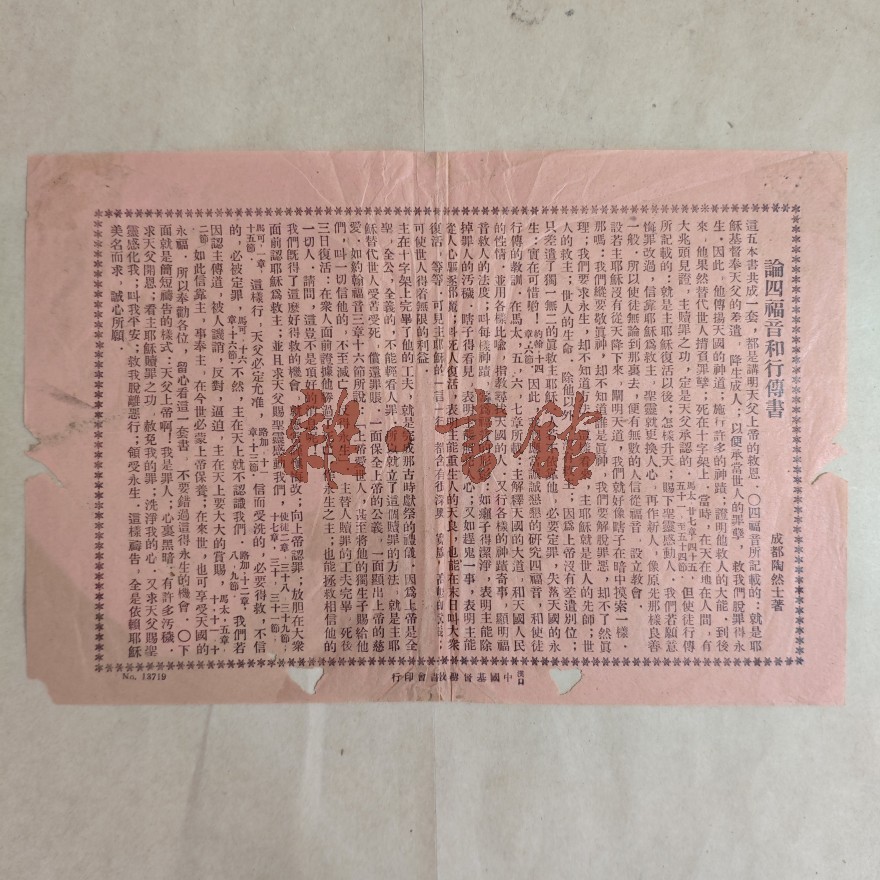 論四福音和行傳書
成都陶然士著
這五本書共成一套，都是講明天父上帝的救恩．〇四福音所記載的：就是耶
穌基督奉天父的差遣，降生成人；以便承當世人的罪孽，救我們脫罪得永
生．因此，他傳揚天國的神道；施行許多的神蹟；證明他救人的大能．到後
來，他果然替代世人擔負罪孽；死在十字架上．當時，在天在地在人間，有
大兆頭見證，主贖罪之功，定是天父承認的．馬太 廿七章·四十五．五十一．至五十四節．但使徒行傳
所記載的：就是主耶穌復活以後；怎樣升天；賜下聖靈感動人．我們若願意
悔罪改過，信靠耶穌爲救主，聖靈就更換人心，再作新人，像原先那樣良善
一般．所以使徒無論到那裏去，便有無數的人信從福音，設立教會．
設若主耶穌沒有從天降下來，闡明天道，我們就好像瞎子在暗中摸索一樣．
那嗎：我們縱要敬眞神，却不知道誰是眞神，我們要解脫罪惡，却不了然眞
理；我們要求永生，却不知道
主耶穌就是世人的先師；世
人的救主；世人的生命．除他以外
主；因爲上帝沒有差遣別位；
只差遣了獨一無二的眞救主耶穌
他，必要定罪，失落天國的永
生；實在可惜啦！約翰 十四章·六節 因此
誠誠懇懇的研究四福音，和使徒
行傳的教訓．在馬太，五，六，七章所載：主解釋天國的大道，和天國人民
的性情，並用各樣比喻，指教尋
天國的人．又行各樣的神蹟奇事，顯明福
音救人的法度；叫每樣神蹟
如癩子得潔淨，表明主能除
掉罪人的汚穢．瞎子得看見，表明
人心；又如趕鬼一事，表明主能
從人心
叫死人復活，表明主能重生人的天良，也能在末日叫大衆
復活，等等．可見主耶穌的
可使世人得着無限的利益．
主在十字架上完畢了他的工夫，就是完成那古時獻祭的禮儀．因爲上帝是全
聖，全公，全義的，不能輕看人罪
就立了這個贖罪的方法，就是主耶
穌替代世人受苦受死，償還罪賬．一面保全上帝的公義，一面顯出上帝的慈
愛．如約翰福音三章十六節所說：
上帝
世人，甚至將他的獨生子賜給他
們，叫一切信他的，不至滅亡
永生．
主替人贖罪的工夫完畢，死後
三日復活：在衆人面前證據他勝過
永生之主；也能拯救相信他的
一切人．請問，這豈不是頂好的
我們既得了這麼好得救的機會，就應
改；向上帝認罪；放胆在大衆
面前認耶穌爲救主，並且求天父賜聖靈感動我們．使徒二章．三十八．三十九節．十七章．三十．三十一節．
馬可．一章．十五節．這樣行，天父必定允准．路加．十一章．十三節．信而受洗的，必要得救，不信
的，必被定罪．馬可．十六章．十六節．不然，主在天上就不認識我們．路加．十二章．八．九節．我們若
因認主傳道，被人譏誚，反對，逼迫，主在天上要大大的賞賜．馬太．五章．十．十一．十二節．如此信靠主，事奉主，在今世必蒙上帝保養；在來世，也可享受天國的
永福．所以奉勸各位，留心看這一套書．不要錯過這得永生的機會．〇下
面就是簡短禱告的樣式：天父上帝啊！我是罪人；心裏黑暗，有許多汚穢．
求天父開恩；看主耶穌贖罪之功，赦免我的罪；洗淨我的心．又求天父賜聖
靈感化我；叫我平安；救我脫離惡行；領受永生．這樣禱告，全是依賴耶穌
美名而求，誠心所願．
漢口中國基督聖教書會印行
No. 13719